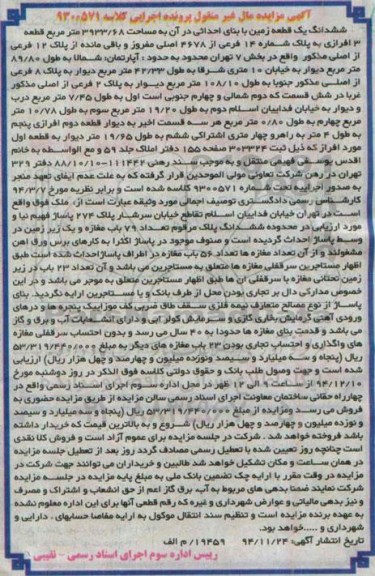 آگهی مزایده مال غیر منقول پرونده اجرایی کلاسه ۹۳۰۰۵۷۱
ششدانگ یک قطعه زمین با بنای احداثی در آن به مساحت ۳۹۳۳/۶۸ متر مربع قطعه
۳ افرازی به پلاک شماره ۱۴ فرعی از ۴۶۷۸ اصلی مفروز و باقی مانده از پلاک ۱۲ فرعی
از اصلی مذکور واقع در بخش ۷ تهران محدود به حدود: آپارتمان: شمالا به طول ۸۹/۸۰
متر مربع دیوار به خیابان ۱۰ متری شرقا به طول ۴۲/۳۳ متر مربع دیوار به پلاک ۸ فرعی
از اصلی مذکور جنوبا به طول ۱۰۸/۱۰ متر مربع دیوار به پلاک ۲ فرعی از اصلی مذکور
غربا در شش قسمت که دوم شمالی و چهارم جنوبی است اول به طول ۷/۴۵ متر مربع درب
و دیوار به خیابان فداییان اسلام دوم به طول ۱۹/۲۰ متر مربع سوم به طول ۱۰/۷۸ متر
مربع چهارم به طول ۰/۸۰ متر مربع هر سه قسمت اخیر به دیوار قطعه دوم افرازی پنجم
به طول ۴ متر به راهرو چهار متری اشتراکی ششم به طول ۱۹/۶۵ متر دیوار به قطعه اول
مورد افراز که ذیل ثبت ۳۰۳۳۲۴ صفحه ۱۵۵ دفتر املاک جلد ۵۹ و مع الواسطه به خانم
اقدس یوسفی فهیمی منتقل و به موجب سند رهنی ۱۱۱۴۴۲-۸۸/۱۰/۱۰ دفتر ۳۲۹
تهران در رهن شرکت تعاونی مولی الموحدین قرار گرفته که به علت عدم ایفای تعهد منجر
به صدور اجراییه تحت شماره ۹۳۰۰۵۷۱ کلاسه شده است و برابر نظریه مورخ ۹۴/۳/۷
کارشناس رسمی دادگستری توصیف اجمالی مورد وثیقه عبارت است از: ملک فوق واقع
است در تهران خیابان فداییان اسلام تقاطع خیابان سرشار پلاک ۲۷۴ پاساژ فهیم نیا و
مورد ارزیابی در محدوده ششدانگ پلاک مرقوم تعداد ۷۹ باب مغازه و یک زیر زمین در
وسط پاساژ احداث گردیده است و صنوف موجود در پاساژ اکثرا به کارهای برس ورق اهن
مشغولند و از آن تعداد مغازه ها تعداد ۵۶ باب مغازه در اطراف پاساژ احداث شده است طبق
اظهار مستاجرین سرقفلی مغازه ها متعلق به مستاجرین می باشد و آن تعداد ۲۳ باب در زیر
زمین تحتی مغازه با سرقفلی آن ها طبق اظهار مستاجرین متعلق به موجر می باشد و در این
خصوص مدارکی دال بر تجاری بودن محل از طرف بانک و یا مستاجرین ارایه نگردید. بنای
پاساژ از نوع مصالح متعارف نیمه فلزی سقف طاق ضربی کف موزاییک پنجره و درهای
ورودی آهنی گرمایش بخاری گازی و سرمایش کولر آبی و دارای انشعابات آب و برق و گاز
می باشد و قدمت بنای مغازه ها حدودا به ۴۰ سال می رسد و بدون احتساب سرقفلی مغازه
های واگذاری و احتساب تجاری بودن ۲۳ باب مغازه های دیگر به مبلغ ۵۳/۳۱۹/۴۴۰/۰۰۰
ریال (پنجاه و سه میلیارد و سیصد ونوزده میلیون و چهارصد و چهل هزار ریال) ارزیابی
شده است و جهت وصول طلب بانک و حقوق دولتی کلاسه فوق الذکر در روز دوشنبه مورخ
۹۴/۱۲/۱۰ از ساعت ۹ الی ۱۲ ظهر در محل اداره سوم اجرای اسناد رسمی واقع در
چهارراه حقانی ساختمان معاونت اجرای اسناد رسمی سالن مزایده از طریق مزایده حضوری به
فروش می رسد ومزایده از مبلغ ۵۳/۳۱۹/۴۴۰/۰۰۰ ریال (پنجاه و سه میلیارد و سیصد
و نوزده میلیون و چهارصد و چهل هزار ریال) شروع و به بالاترین قیمت که خریدار داشته
باشد فروخته خواهد شد. شرکت در جلسه مزایده برای عموم آزاد است و فروش کلا نقدی
است چنانچه روز تعیین شده با تعطیل رسمی مصادف گردد روز بعد از تعطیل جلسه مزایده
در همان ساعت و مکان تشکیل خواهد شد طالبین و خریداران می توانند جهت شرکت در
مزایده در وقت مقرر با ارایه چک تضمین بانک ملی به مبلغ پایه مزایده در جلسه مزایده
شرکت نمایند ضمنا بدهی های مربوط به آب، برق گاز اعم از حق انشعاب و اشتراک و مصرف
و نیز بدهی مالیاتی و عوارض شهرداری و غیره که رقم قطعی آنها برای این اداره معلوم نشده
به عهده برنده مزایده است و تنظیم سند انتقال موکول به ارایه مفاصا حسابهای، دارایی و
شهرداری و .....خواهد بود.
تاریخ انتشار آگهی: ۹۴/۱۱/۲۴ ۱۹۴۵۹/ م الف
رییس اداره سوم اجرای اسناد رسمی - نقیبی